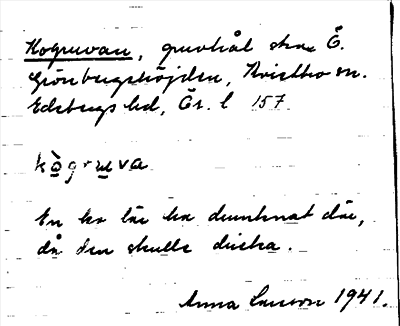 Kogruvan, gruvhål ska Ö.
Grönbergshöjden, Kvistbro sn.
Edsbergs hd, Ör. l 157
kògruva
En ko lär ha drunknat där,
då den skulle dricka.
Anna Larsson 1941.